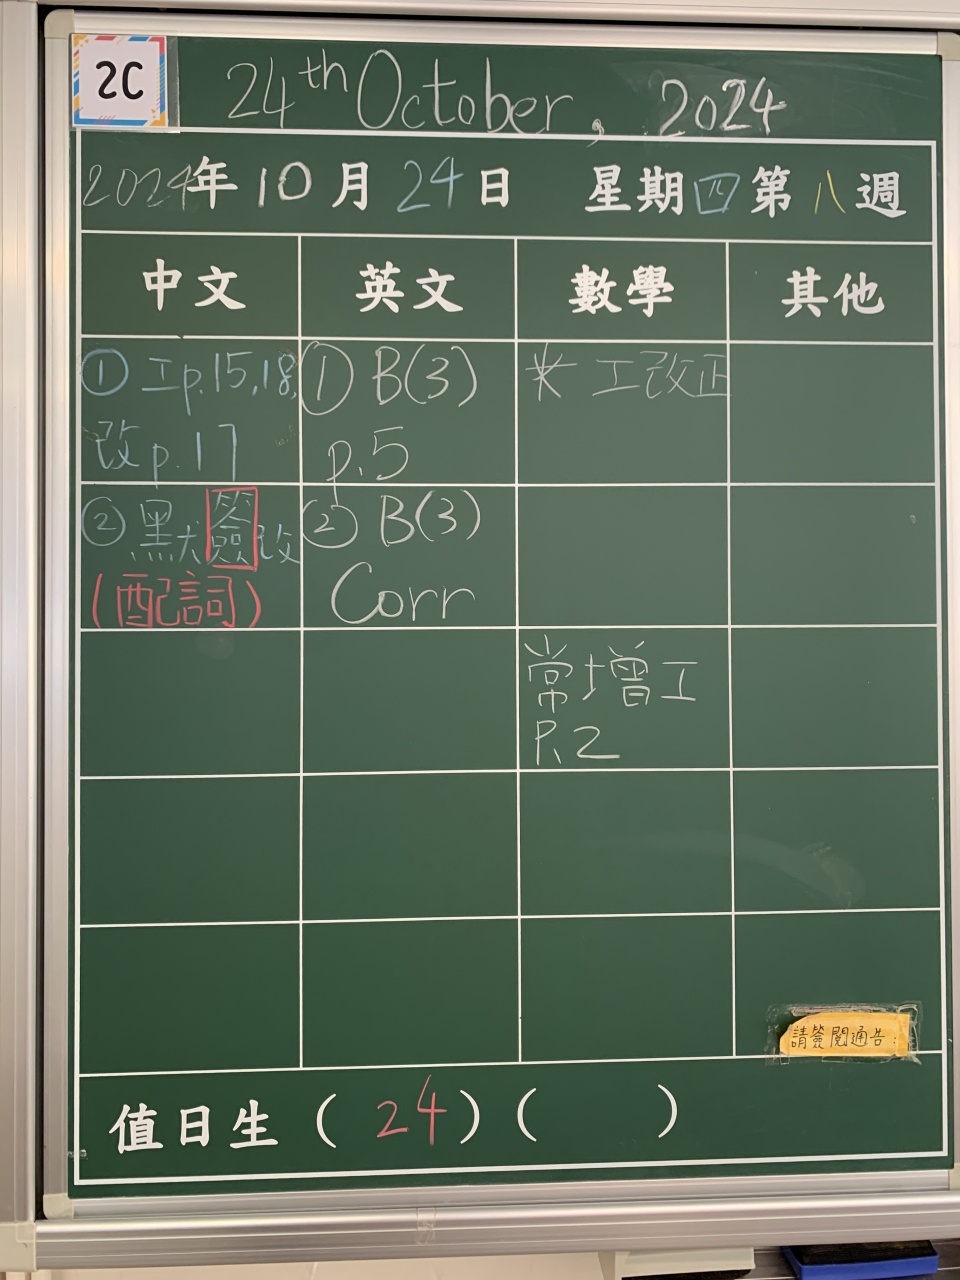 2C
24th October, 2024
2024年10月24日 星期四第八週
中文 英文 數學 其他
①工p.15,18,
改p.17
①B(3)
p.5
*工改正
②默簽改
(配詞)
②B(3)
Corr
常增工
P.2
請簽閱通告:
值日生(24)( )